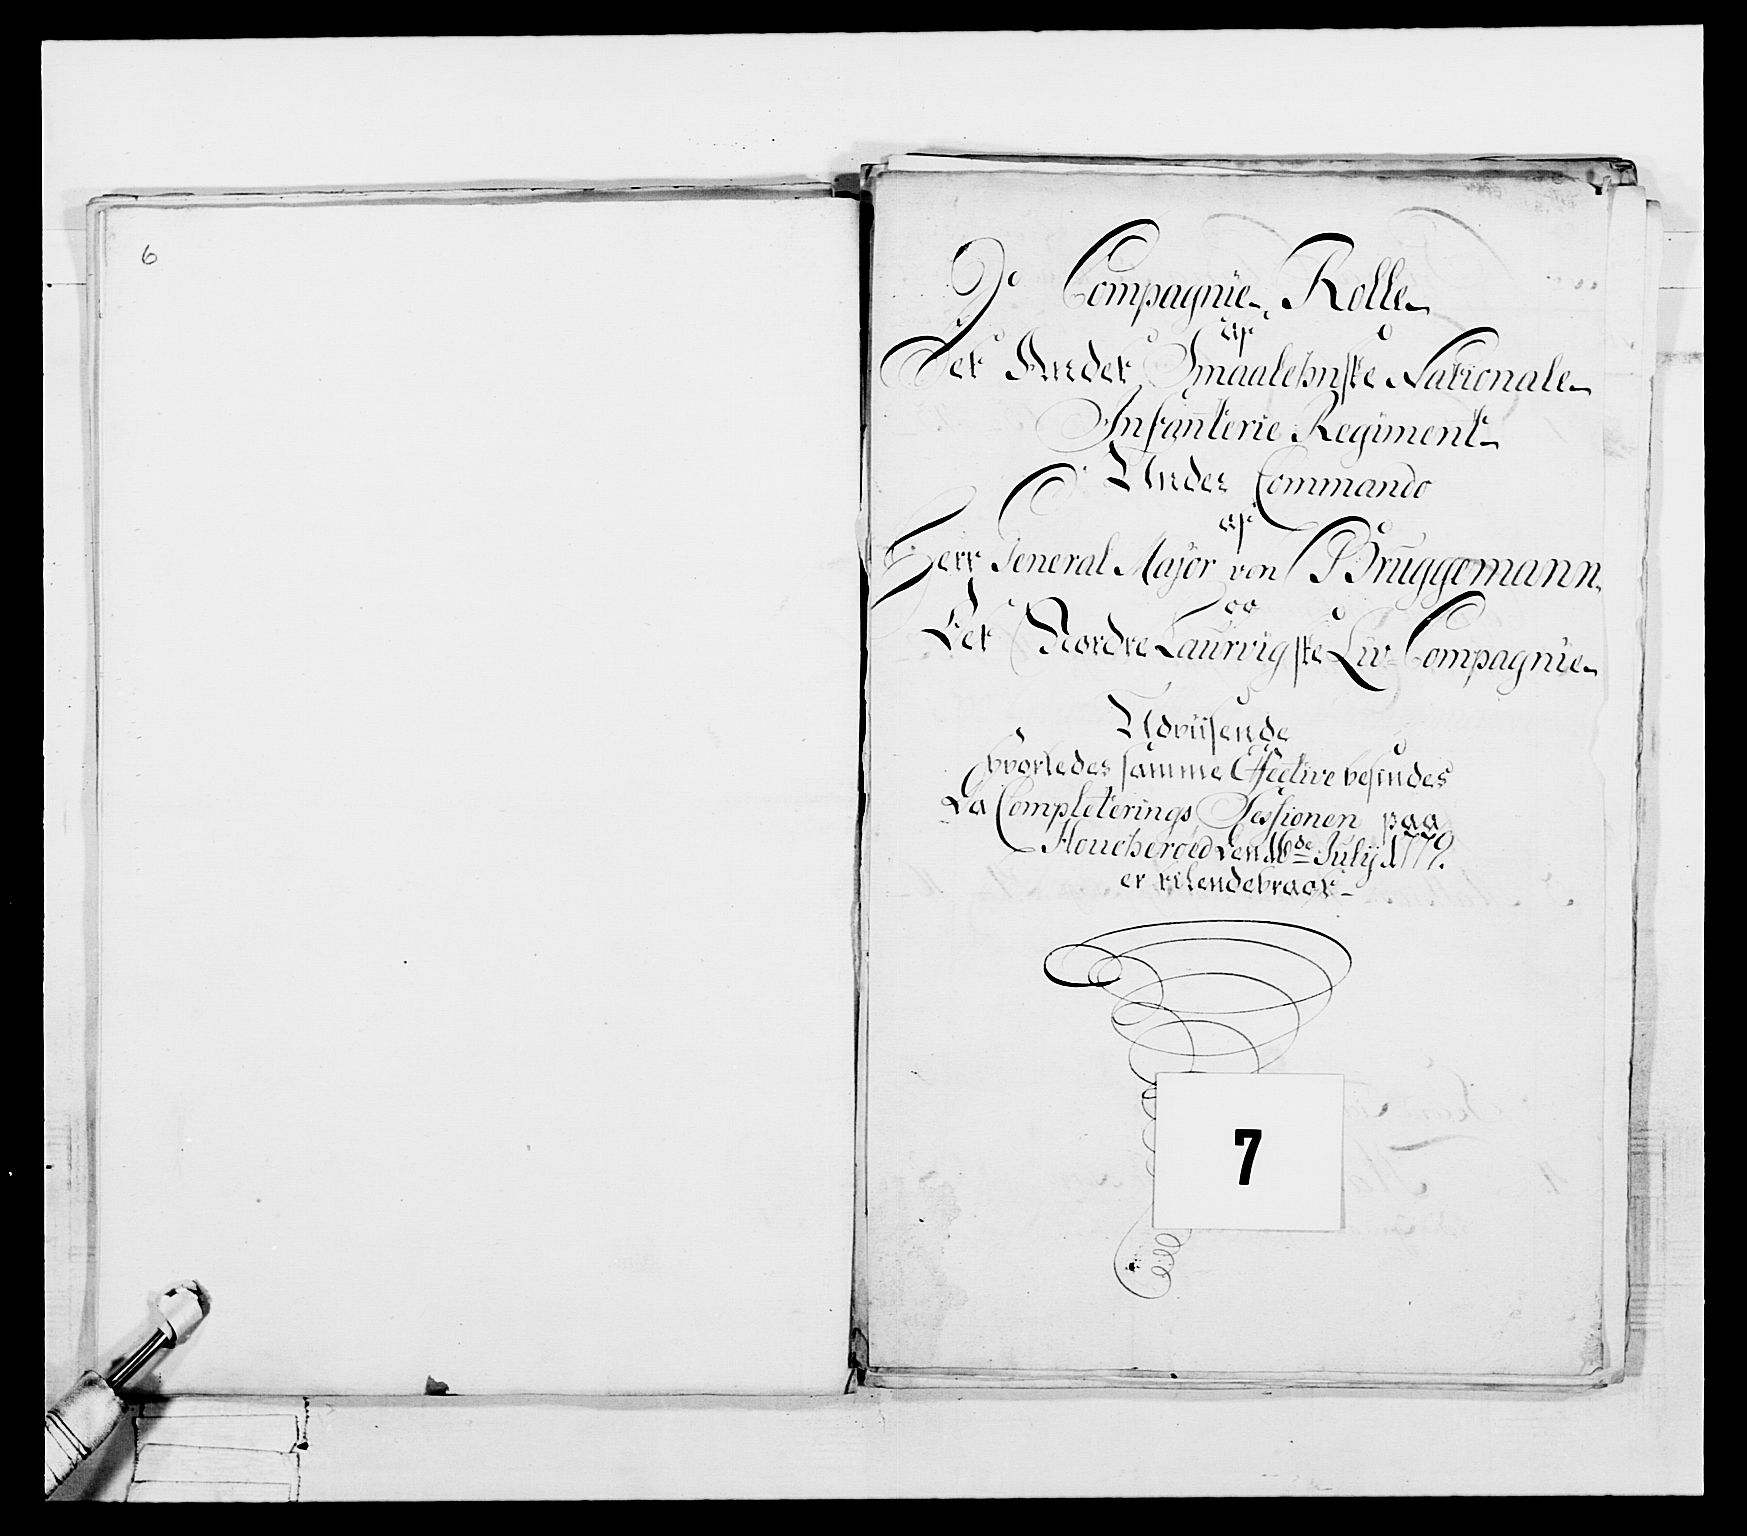 6
Compagnie Rolle
af
Det Andet Smaalehnske Nationale
Infanterie Regiment
Under Commando
af
Herr General Major von Brüggemann
og
Det Nordre Laurvigske Liv Compagnie
Udviisende
hvorledes samme Effective befindes
Da Completerings Sessionen paa
Den 16de Julij 1779.
er tilendebragt
7